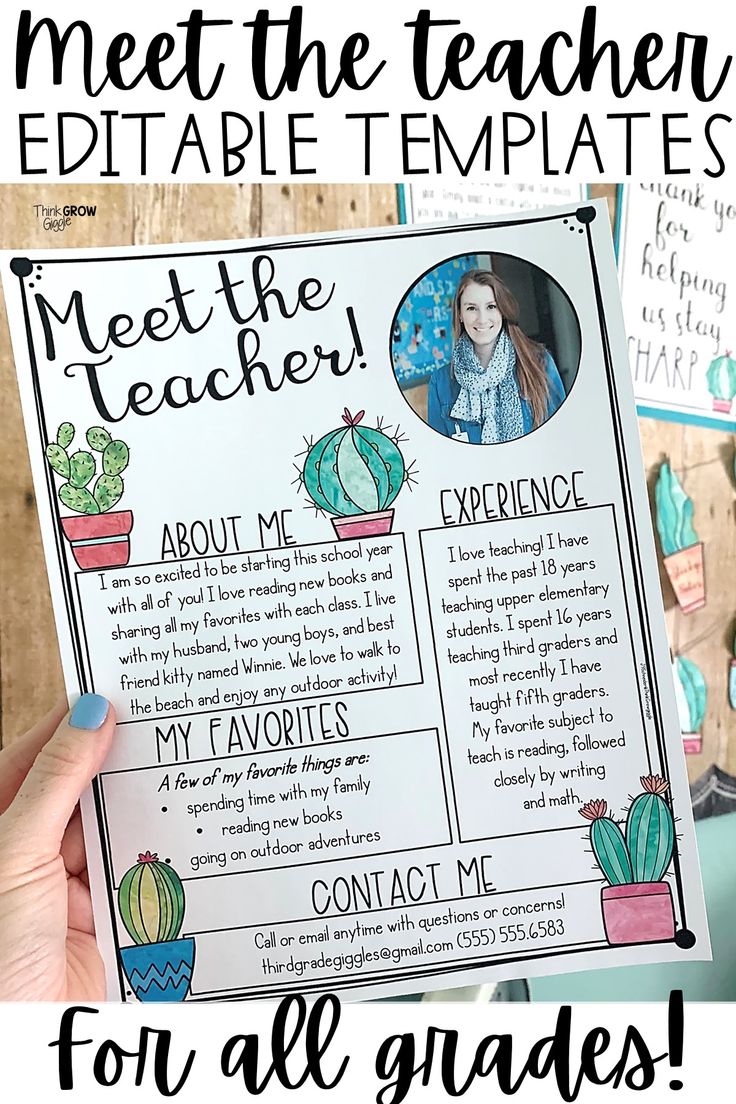 Meet the teacher
EDITABLE TEMPLATES
Think GROW
Giggle
Meet the
Teacher!
ABOUT ME
I am so excited to be starting this school year
with all of you! I love reading new books and
sharing all my favorites with each class. I live
with my husband, two young boys, and best
friend kitty named Winnie. We love to walk to
the beach and enjoy any outdoor activity!
EXPERIENCE
I love teaching! I have
spent the past 18 years
teaching upper elementary
students. I spent 16 years
teaching third graders and
most recently I have
taught fifth graders.
My favorite subject to
teach is reading, followed
closely by writing
and math.
MY FAVORITES
A few of my favorite things are:
• spending time with my family
• reading new books
• going on outdoor adventures
CONTACT ME
Call or email anytime with questions or concerns!
thirdgradegiggles@gmail.com (555) 555.6583
for
helping
us stay
SHARP
For all grades!